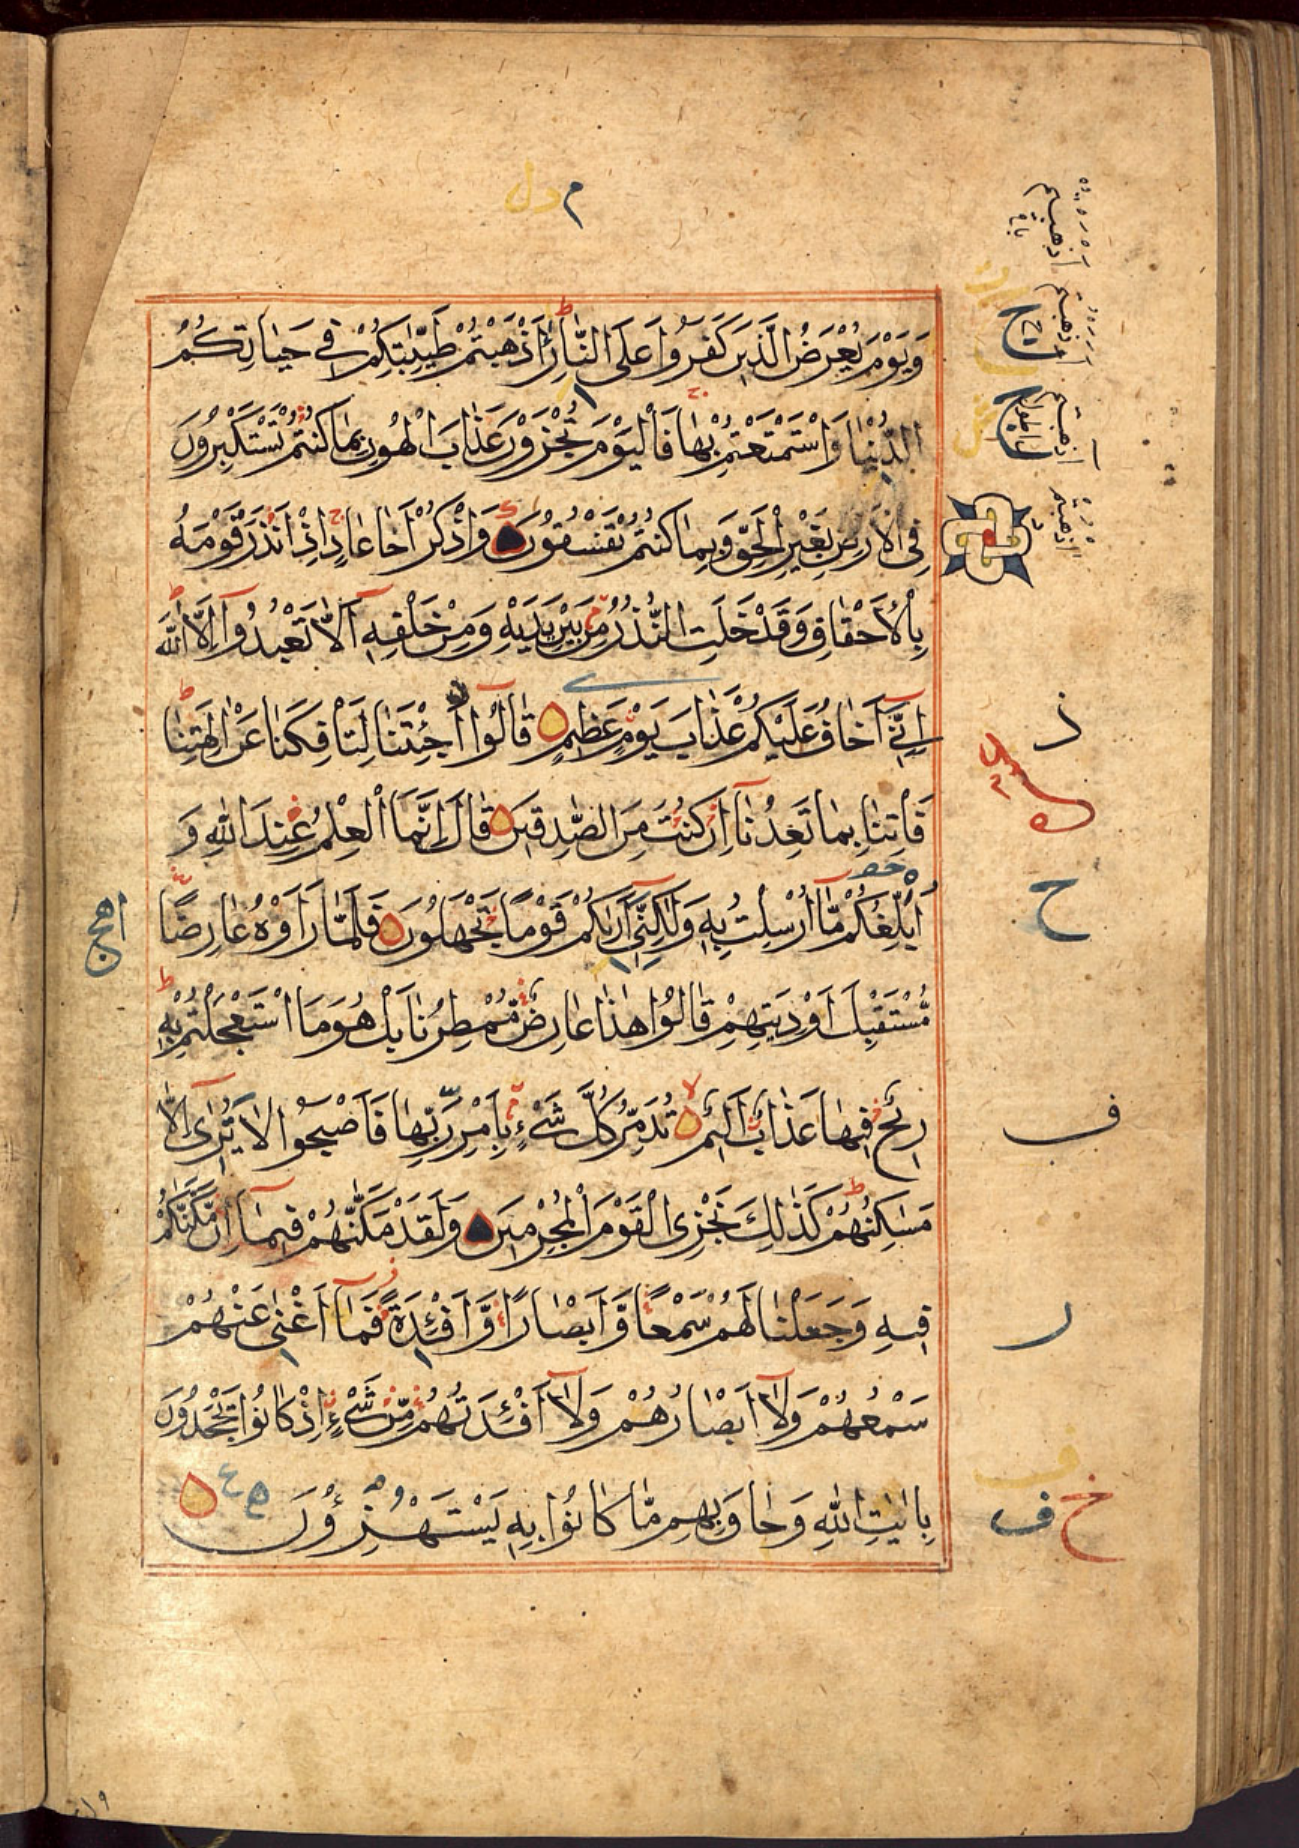 م دل
وَيَوْمَ يُعْرَضُ الَّذِينَ كَفَرُوا عَلَى النَّارِ أَذْهَبْتُمْ طَيِّبٰتِكُمْ فِي حَيَاتِكُمُ
الدُّنْيَا وَاسْتَمْتَعْتُمْ بِهَا فَالْيَوْمَ تُجْزَوْنَ عَذَابَ الْهُونِ بِمَا كُنْتُمْ تَسْتَكْبِرُونَ
فِي الْأَرْضِ بِغَيْرِ الْحَقِّ وَبِمَا كُنْتُمْ تَفْسُقُونَ وَاذْكُرْ أَخَا عَادٍ إِذْ أَنْذَرَ قَوْمَهُ
بِالْأَحْقَافِ وَقَدْ خَلَتِ النُّذُرُ مِنْ بَيْنِ يَدَيْهِ وَمِنْ خَلْفِهِ أَلَّا تَعْبُدُوا إِلَّا اللّٰهَ
إِنِّي أَخَافُ عَلَيْكُمْ عَذَابَ يَوْمٍ عَظِيمٍ قَالُوا أَجِئْتَنَا لِتَأْفِكَنَا عَنْ اٰلِهَتِنَا
فَأْتِنَا بِمَا تَعِدُنَا إِنْ كُنْتَ مِنَ الصّٰدِقِينَ قَالَ إِنَّمَا الْعِلْمُ عِنْدَ اللّٰهِ وَ
أُبَلِّغُكُمْ مَّا أُرْسِلْتُ بِهِ وَلٰكِنِّي أَرٰىكُمْ قَوْمًا تَجْهَلُونَ فَلَمَّا رَأَوْهُ عَارِضًا
مُّسْتَقْبِلَ أَوْدِيَتِهِمْ قَالُوا هٰذَا عَارِضٌ مُّمْطِرُنَا بَلْ هُوَ مَا اسْتَعْجَلْتُمْ بِهِ
رِيْحٌ فِيهَا عَذَابٌ أَلِيمٌ تُدَمِّرُ كُلَّ شَيْءٍ بِأَمْرِ رَبِّهَا فَأَصْبَحُوا لَا يُرٰى إِلَّا
مَسٰكِنُهُمْ كَذٰلِكَ نَجْزِي الْقَوْمَ الْمُجْرِمِينَ وَلَقَدْ مَكَّنّٰهُمْ فِيمَا إِنْ مَّكَّنّٰكُمْ
فِيهِ وَجَعَلْنَا لَهُمْ سَمْعًا وَّأَبْصَارًا وَّأَفْئِدَةً فَمَا أَغْنٰى عَنْهُمْ
سَمْعُهُمْ وَلَا أَبْصَارُهُمْ وَلَا أَفْئِدَتُهُمْ مِّنْ شَيْءٍ إِذْ كَانُوا يَجْحَدُونَ
بِاٰيٰتِ اللّٰهِ وَحَاقَ بِهِمْ مَّا كَانُوا بِهِ يَسْتَهْزِءُوْنَ
ذ
ح
ف
ر
ف
خ ف